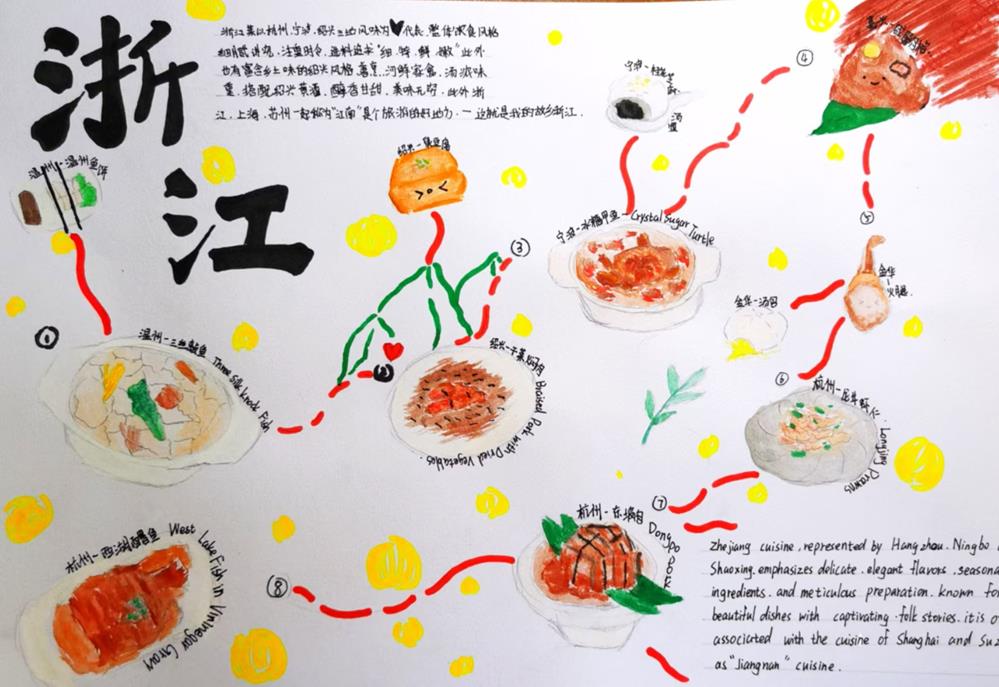 浙
江
浙江菜以杭州、宁波、绍兴三地风味为♥代表,整体饮食风格
细腻讲究,注重时令,选料追求"细、特、鲜、嫩"此外
也有富含乡土味的绍兴风格,喜烹 河鲜家禽,汤浓味
重,搭配绍兴黄酒,酥香甘甜,美味无穷.此外浙
江、上海、苏州一起称为"江南"是个旅游的好地方.一这就是我的故乡浙江.
温州-温州鱼饼
绍兴-臭豆腐
宁波-
汤圆
嘉兴-
①
温州-三丝敲鱼 Three Silk Knock Fish
②
绍兴-干菜焖肉 Braised Pork with Dried Vegetables.
③
宁波-冰糖甲鱼-Crystal Sugar Turtle
④
⑤
金华-火腿
金华-汤包
⑥
杭州-龙井虾仁. Longjing Prawns
⑦
杭州-东坡肉 Dongpo Pork
⑧
杭州-西湖醋鱼 West Lake Fish in Vininegar Gravy
Zhejiang cuisine, represented by Hangzhou. Ningbo
Shaoxing. emphasizes delicate. elegant flavors. seasona
ingredients. and meticulous preparation. known fo
beautiful dishes with captivating. folk stories. it is o
associated with the cuisine of Shanghai and Su
as "Jiangnan" cuisine.